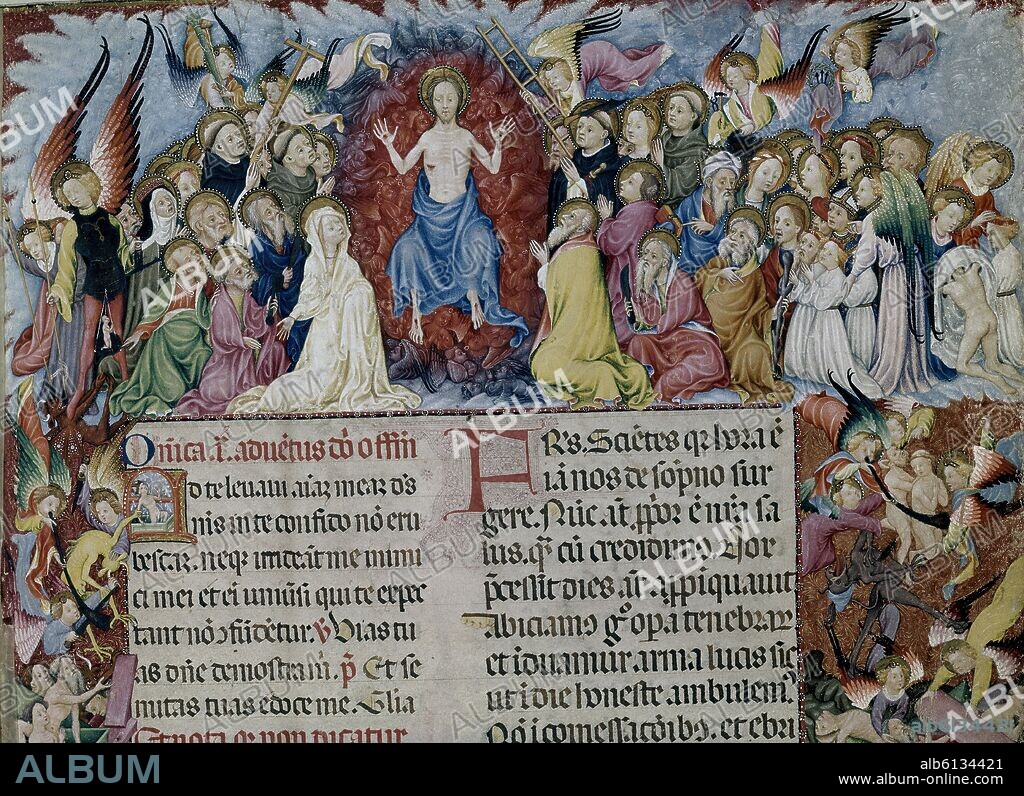 Onica .I. adue̅tus do̅i offm̅
Ad te leuaui ai̅aꝫ meaꝫ ds̅
in te confido no̅ eru
bescaꝫ. neqꝫ irridea̅t me inimi
ci mei et ei̅ uniu̅si qui te expe
tant no̅ ꝯfu̅detur. V Vias tu
as dn̅e demostra m̅. p̅. Et se
mitas tuas edoce me. Glia
FRs. Scie̅tes qr hora e̅
ia̅ nos de so̅pno sur
gere. Nu̅c at̅ ꝓpior e̅ nr̅a sa
lus. qꝫ cu̅ credidimꝰ. Nox
p̅cessit dies at̅ appi̅quauit
Abiciamꝰ gͦ oꝑa tenebraꝝ
et i̅duamur arma lucis sic
ut i̅ die honeste ambulemꝰ
No̅ i̅ comessac̅oibꝰ. et ebri
ALBUM
alb6134421
www.album-online.com